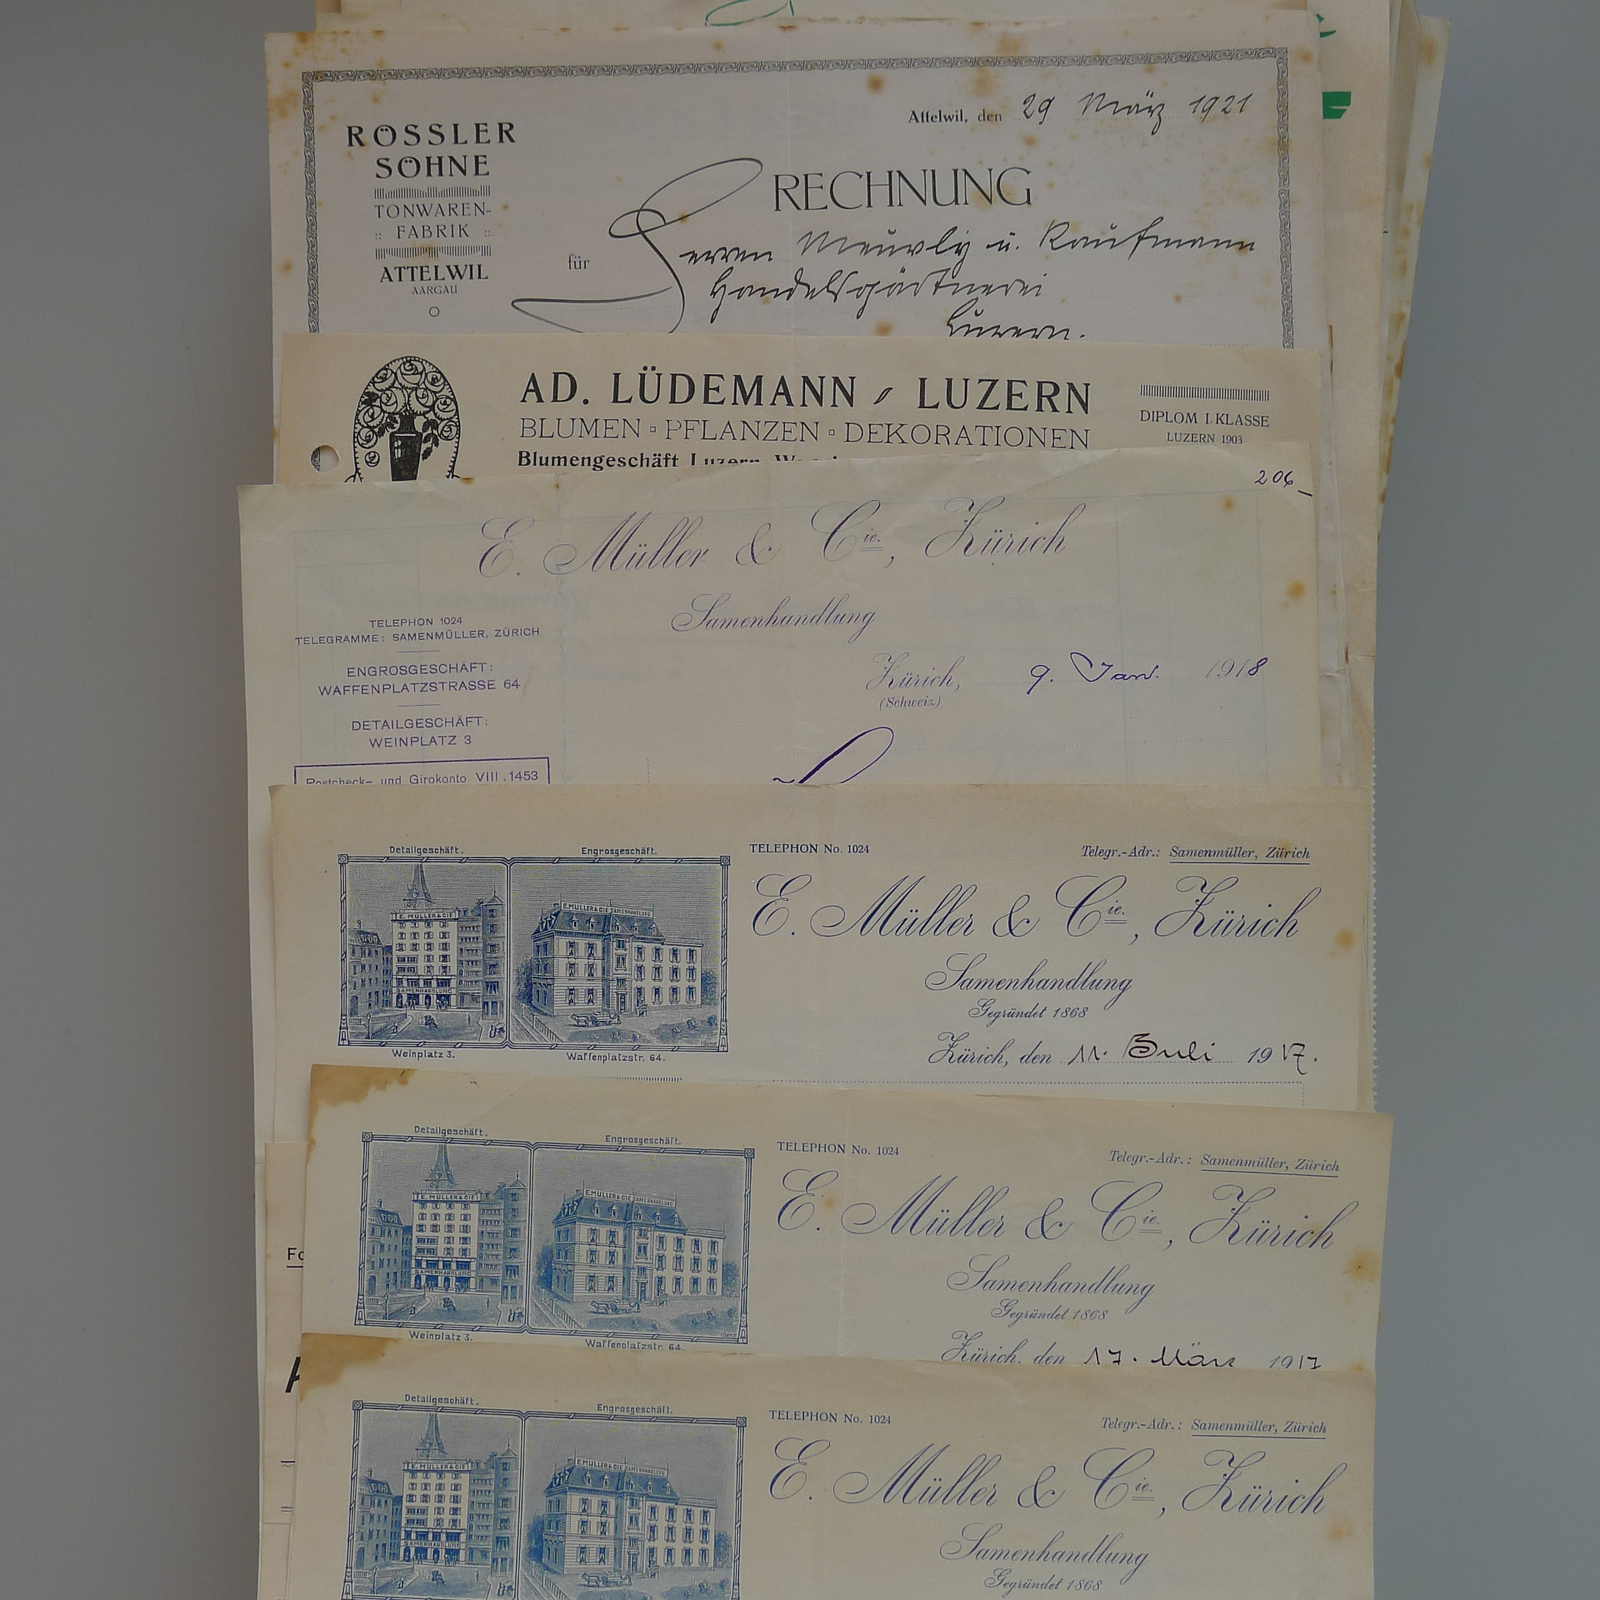 Attelwil, den 29 März 1921
RÖSSLER
SÖHNE
TONWAREN-
:: FABRIK ::
ATTELWIL
AARGAU
RECHNUNG
für Herren Meuvly u. Kaufmann
Handelsgärtnerei
Luzern.
AD. LÜDEMANN LUZERN
BLUMEN ▫ PFLANZEN ▫ DEKORATIONEN
Blumengeschäft Luzern
DIPLOM I. KLASSE
LUZERN 1903
206
E. Müller & Cie., Zürich
Samenhandlung
TELEPHON 1024
TELEGRAMME: SAMENMÜLLER, ZÜRICH
ENGROSGESCHÄFT:
WAFFENPLATZSTRASSE 64
DETAILGESCHÄFT:
WEINPLATZ 3
Postcheck- und Girokonto VIII.1453
Zürich, 9. Jan. 1918
(Schweiz)
Detailgeschäft. Engrosgeschäft.
E. MÜLLER & CIE
SAMENHANDLUNG
E. MÜLLER & CIE SAMENHANDLUNG
Weinplatz 3. Waffenplatzstr. 64.
TELEPHON No. 1024 Telegr.-Adr.: Samenmüller, Zürich
E. Müller & Cie., Zürich
Samenhandlung
Gegründet 1868
Zürich, den 11. Juli 1917.
Detailgeschäft. Engrosgeschäft.
E. MÜLLER & CIE
SAMENHANDLUNG
E. MÜLLER & CIE SAMENHANDLUNG
Weinplatz 3. Waffenplatzstr. 64.
TELEPHON No. 1024 Telegr.-Adr.: Samenmüller, Zürich
E. Müller & Cie., Zürich
Samenhandlung
Gegründet 1868
Zürich, den 17. März 1917
Detailgeschäft. Engrosgeschäft.
E. MÜLLER & CIE
SAMENHANDLUNG
E. MÜLLER & CIE SAMENHANDLUNG
TELEPHON No. 1024 Telegr.-Adr.: Samenmüller, Zürich
E. Müller & Cie., Zürich
Samenhandlung
Gegründet 1868